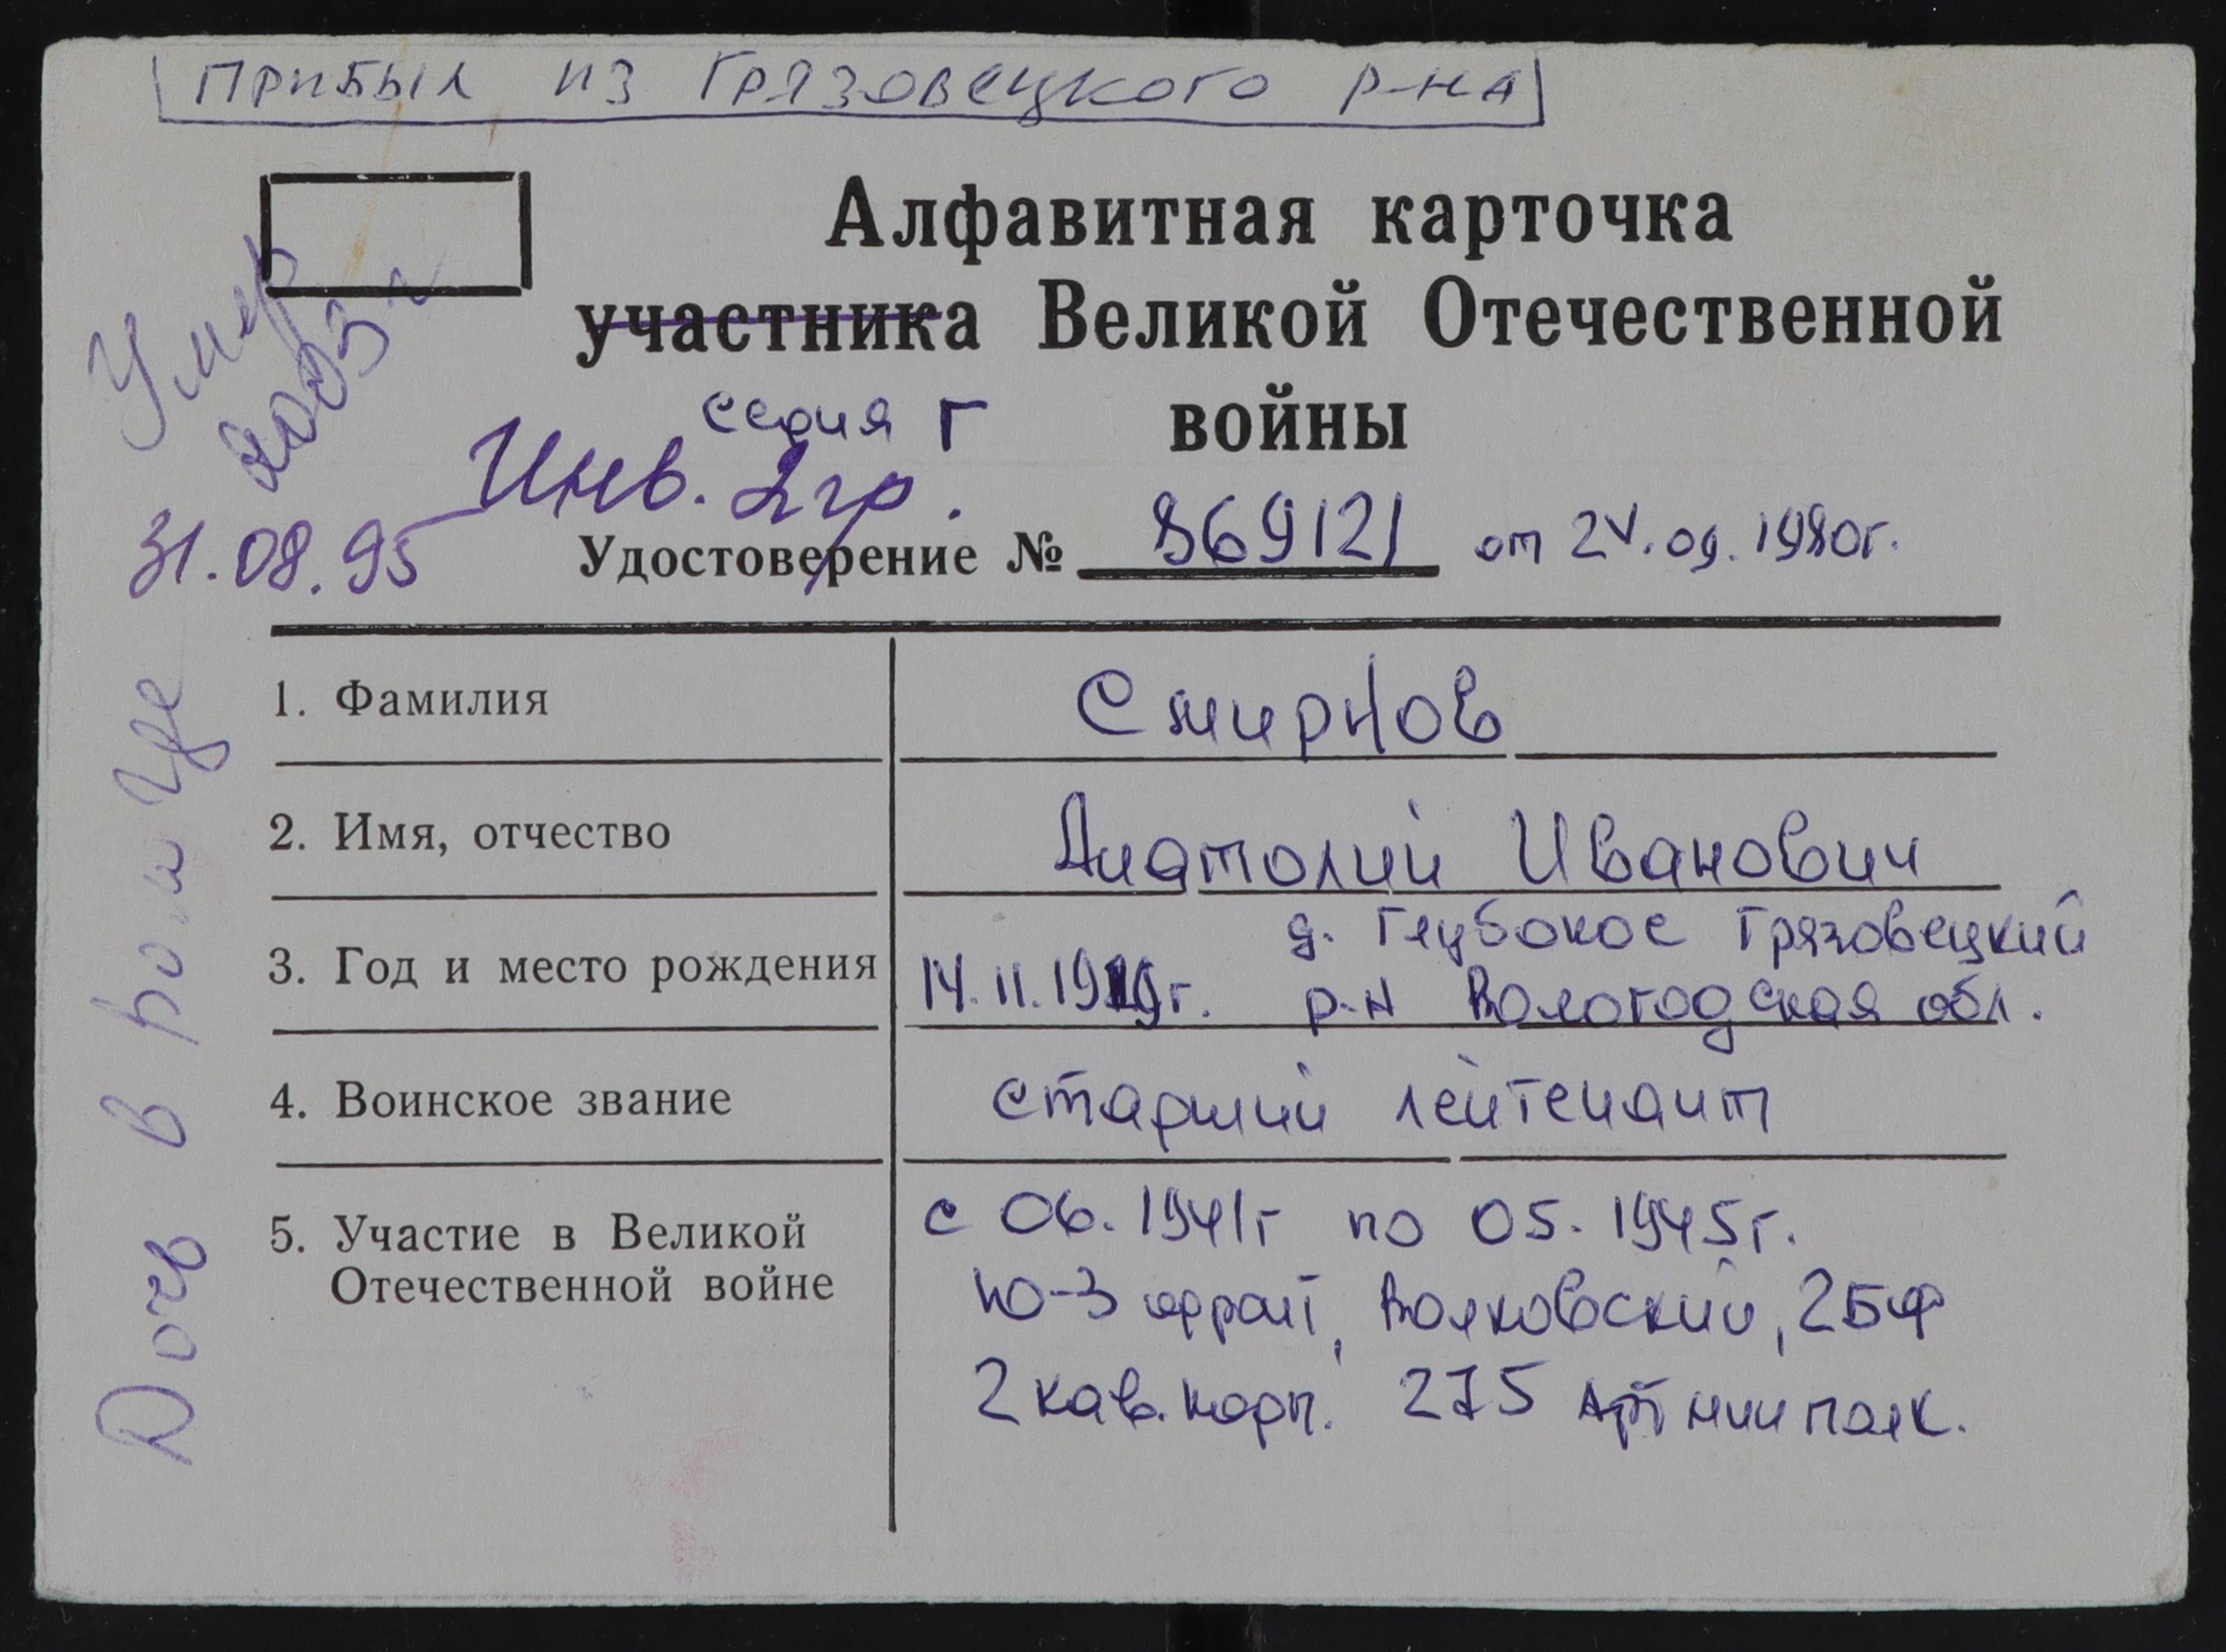 Прибыл из Грязовецкого р-на
Алфавитная карточка
участника Великой Отечественной
войны
серия Г
Инв. 2 гр.
Умер
2003 г
31.08.95
Удостоверение № 869121 от 24.09.1980г.
1. Фамилия Смирнов
2. Имя, отчество Анатолий Иванович
3. Год и место рождения 14.11.1919г. д. Глубокое Грязовецкий
р-н Вологодская обл.
4. Воинское звание старший лейтенант
5. Участие в Великой
Отечественной войне
с 06.1941г по 05.1945г.
Ю-З фронт, Волховский, 2БФ
2 кав. корп. 275 арт полк.
Дочь в